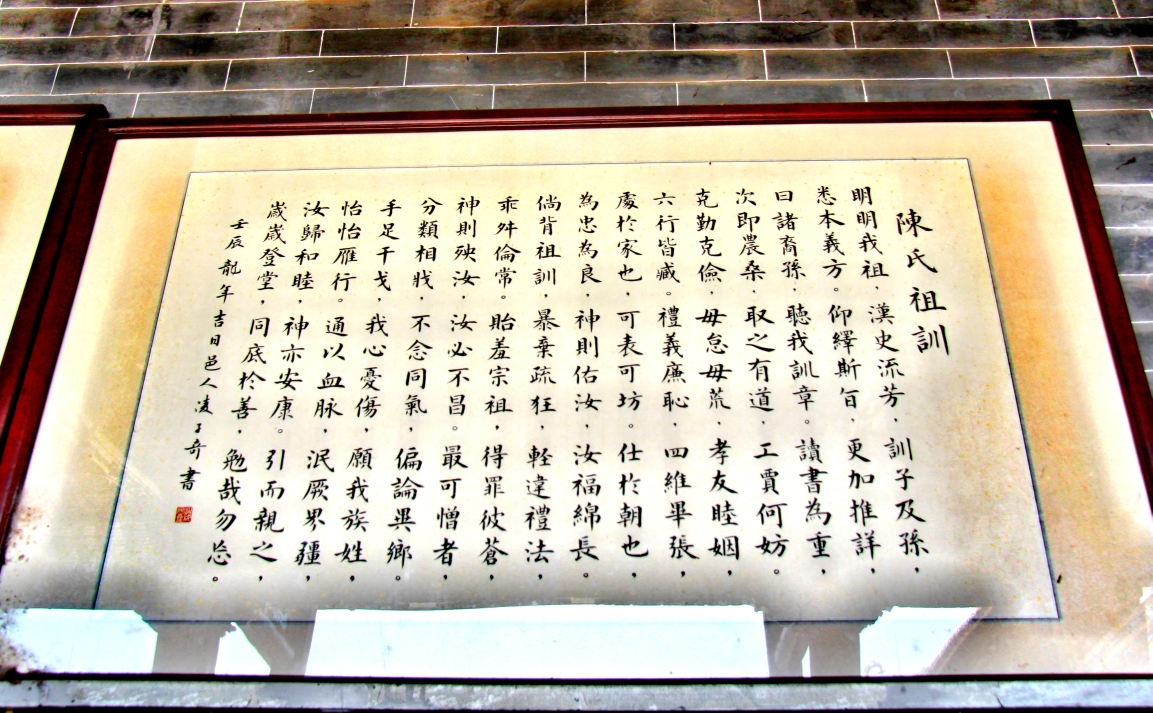 陳氏祖訓
明明我祖，漢史流芳，訓子及孫，
悉本義方。仰繹斯旨，更加推詳，
曰諸裔孫，聽我訓章。讀書為重，
次即農桑，取之有道，工賈何妨。
克勤克儉，毋怠毋荒，孝友睦姻，
六行皆臧。禮義廉恥，四維畢張，
處於家也，可表可坊。仕於朝也，
為忠為良，神則佑汝，汝福綿長。
倘背祖訓，暴棄疏狂，輕違禮法，
乖舛倫常。貽羞宗祖，得罪彼蒼，
神則殃汝，汝必不昌。最可憎者，
分類相戕，不念同氣，偏論異鄉。
手足干戈，我心憂傷，願我族姓，
怡怡雁行。通以血脉，泯厥界疆，
汝歸和睦，神亦安康。引而親之，
歲歲登堂，同底於善，勉哉勿忘。
壬辰龍年吉日邑人淩子奇書